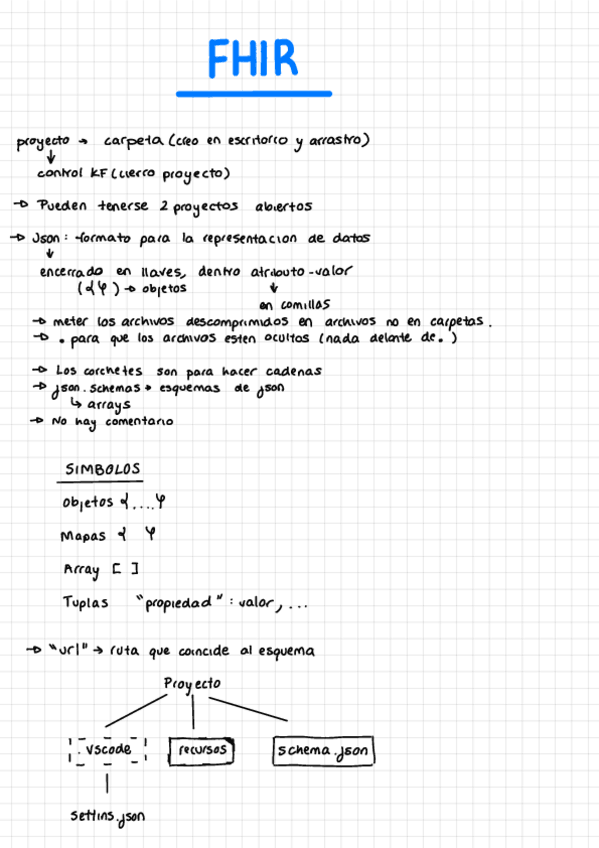 FHIR
proyecto → carpeta (creo en escritorio y arrastro)
↓
control KF (cierro proyecto)
→ Pueden tenerse 2 proyectos abiertos
→ Json: formato para la representacion de datos
↓
encerrado en llaves, dentro atributo-valor
({ }) → objetos ↓
en comillas
→ meter los archivos descomprimidos en archivos no en carpetas.
→ . para que los archivos esten ocultos (nada delante de .)
→ Los corchetes son para hacer cadenas
→ json.schemas → esquemas de json
↳ arrays
→ No hay comentario
SIMBOLOS
Objetos {....}
Mapas { }
Array [ ]
Tuplas "propiedad": valor, ...
→ "url" → ruta que coincide al esquema
Proyecto
.vscode recursos schema.json
settins.json